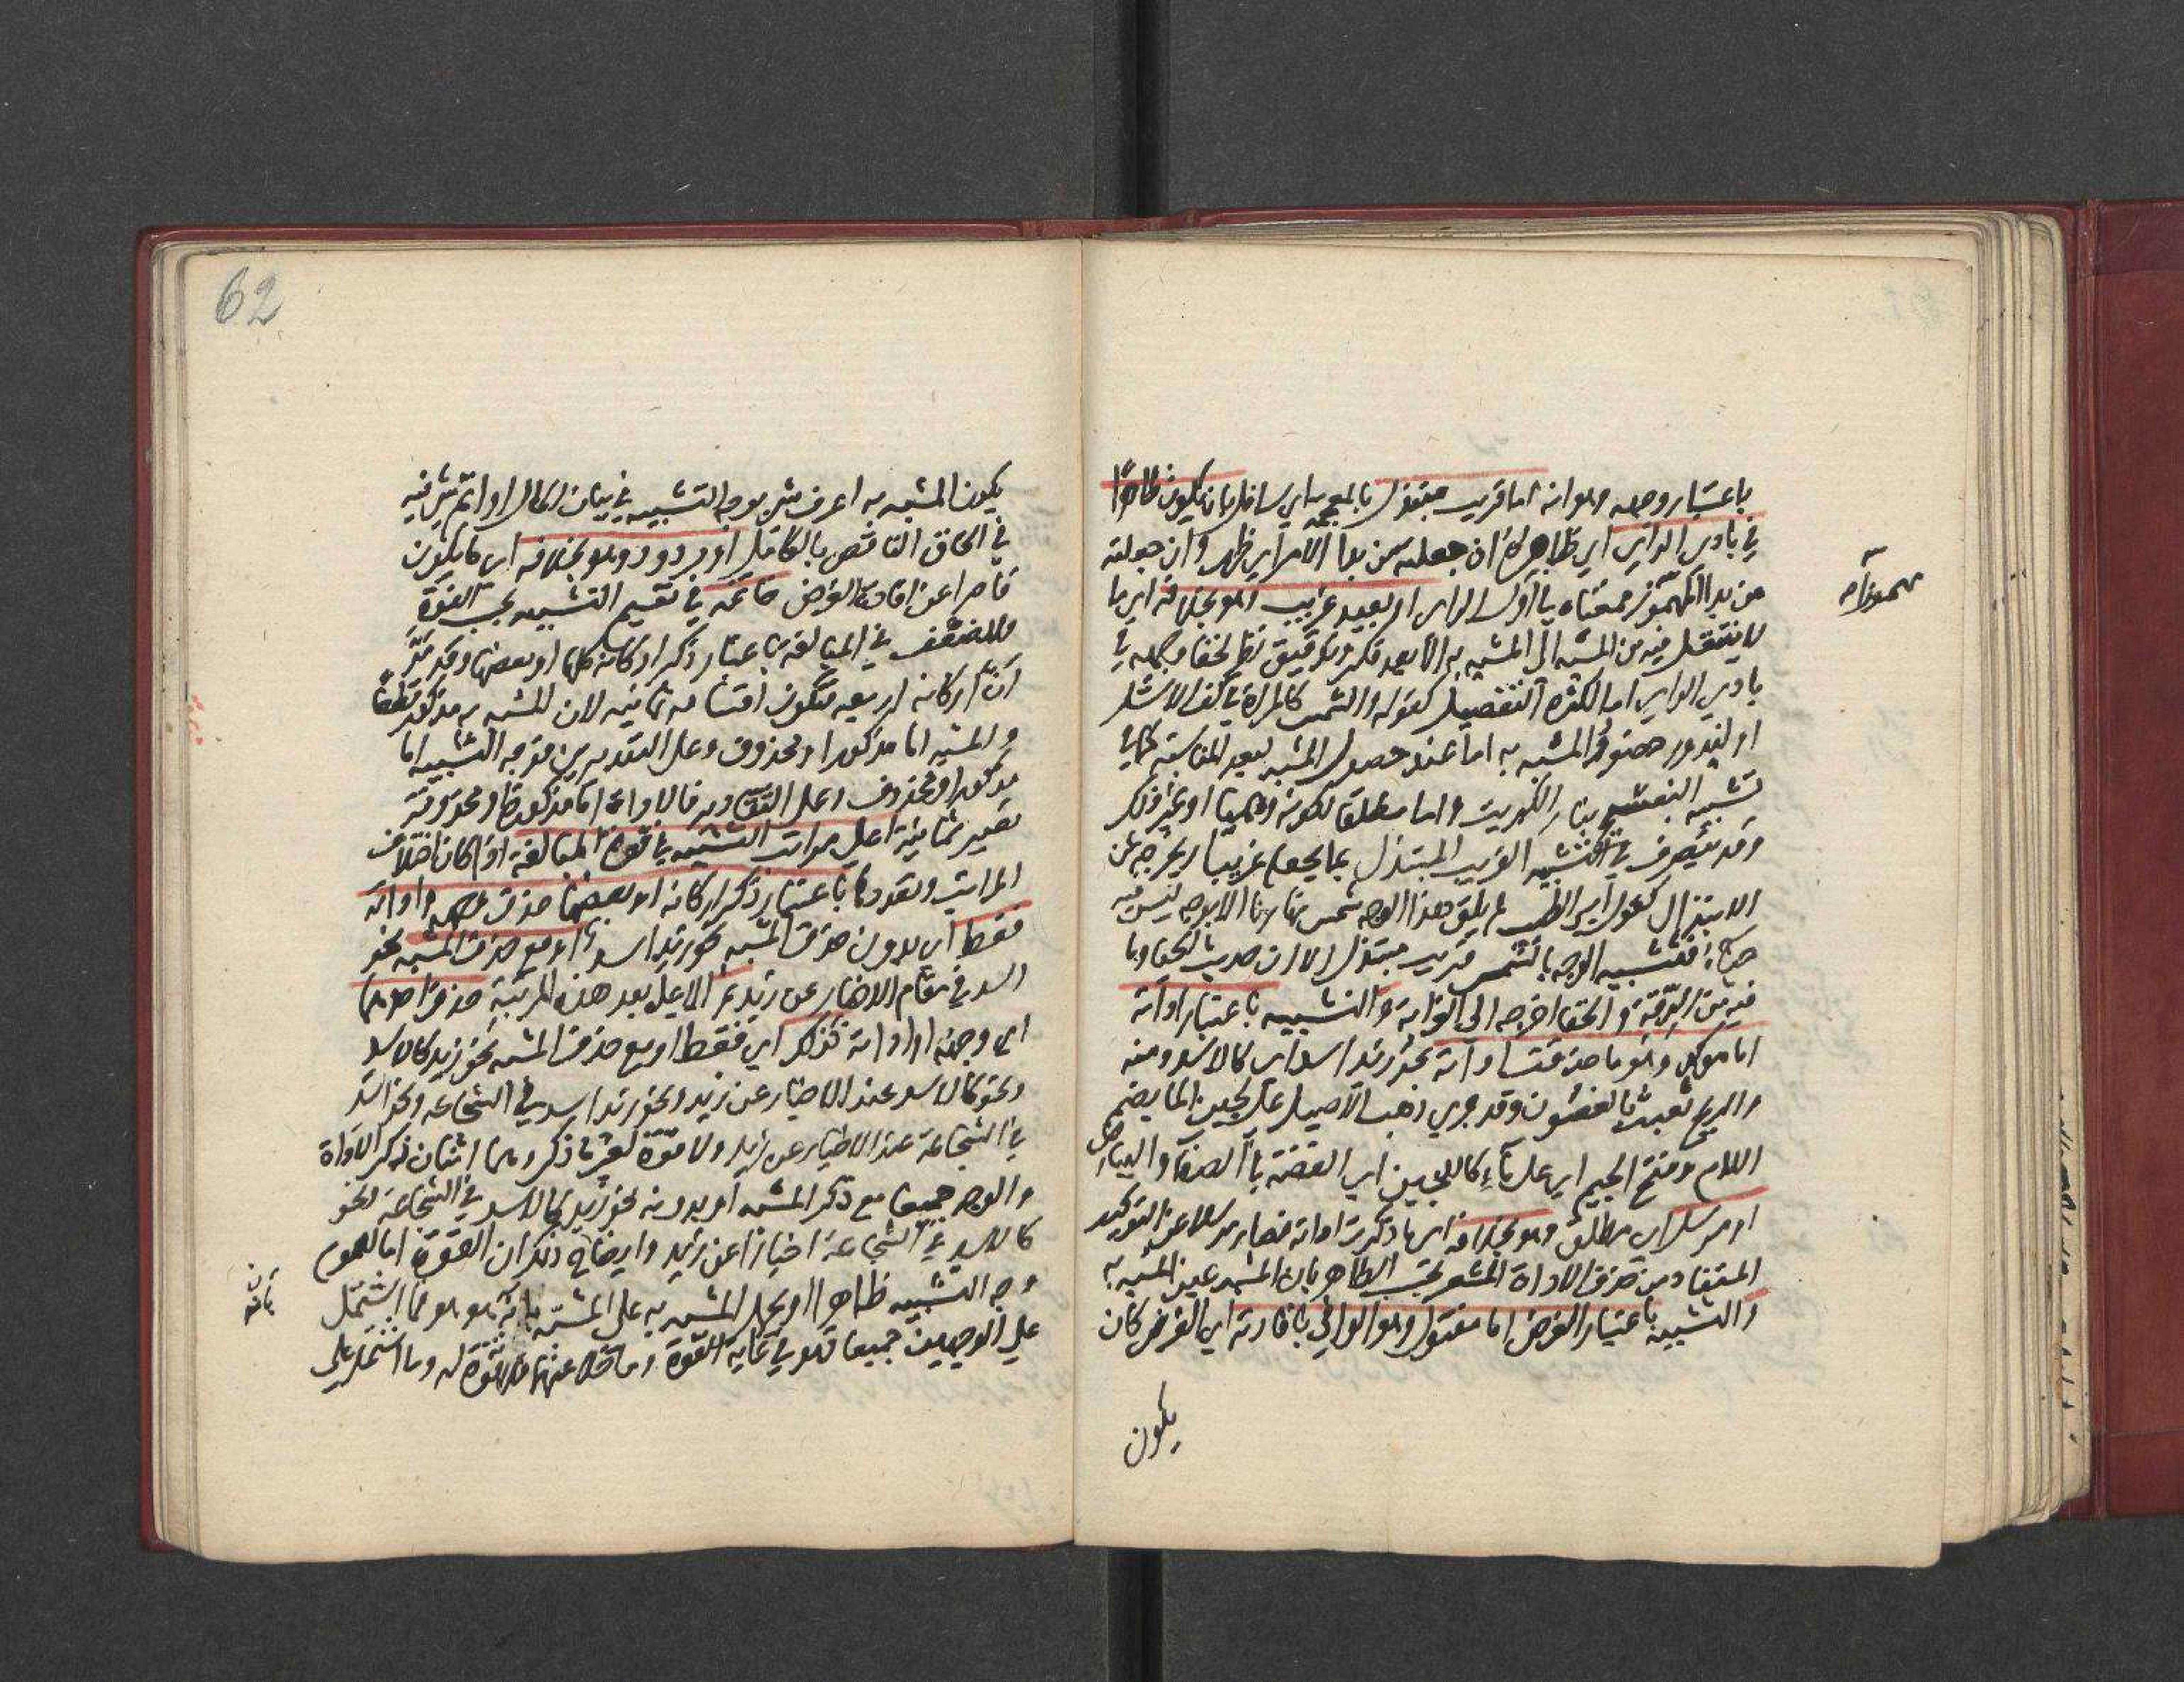 باعتبار وجهه وهو انه اما قريب مبتذل بالمعجمة اي سافل بان يكون ظاهرا
في بادي الراي اي ظاهره ان جعلته من بدا الامر اي ظهر وان جعلته
من بدا المهموز فمعناه با اول الراي او بعيد غريب وهو بخلافه اي ما
لا ينتقل فيه من المشبه الى المشبه به الا بعد فكر وتدقيق نظر لخفا وجهه في
بادي الراي اما لكثرة التفصيل كقوله والشمس كالمراة في كف الاشل
او لندور حضور المشبه به اما عند حضور المشبه لبعد المناسبة كما في
تشبيه البنفسج بنار الكبريت واما مطلقا لكونه وهميا او غير ذلك
وقد يتصرف في التشبيه القريب المبتذل بما يجعله غريبا ويخرجه عن
الابتذال كقول ابي الطيب لم يلق هذا الوجه شمس نهارنا الا بوجه ليس فيه
حياء فتشبيه الوجه بالشمس قريب مبتذل الا ان حديث الحيا وما
فيه من الدقة و الخفا اخرجه الى الغرابة والتشبيه باعتبار اداته
اما موكد وهو ما حذفت اداته نحو زيد اسد اي كالاسد ومنه
والريح تعبث بالغصون وقد جري ذهب الاصيل على لجين الما بضم
اللام وفتح الجيم اي على ماء كاللجين اي الفضة با الصفا والبياض
او مرسل اي مطلق وهو بخلافه اي ما ذكرت اداته فصار مرسلا عن التوكيد
المستفاد من حذف الاداة المشعر بحسب الظاهر بان المشبه عين المشبه به
والتشبيه باعتبار الغرض اما مقبول وهو الوافي بافادته اي الغرض كان
يكون
62
يكون المشبه به اعرف شي بوجه التشبيه في بيان الحال او اتم شي فيه
في الحاق الناقص بالكامل او مردود وهو بخلافه اي ما يكون
قاصرا عن افادة الغرض خاتمة في تقسيم التشبيه بحسب القوة
والضعف في المبالغة باعتبار ذكر اركانه كلها او بعضها وقد مر
ان اركانه اربعه فتكون اقسامه ثمانيه لان المشبه به مذكور قطعا
والمشبه اما مذكور او محذوف وعلى التقديرين فوجه التشبيه اما
مذكور او محذوف وعلى التقادير فالاداة اما مذكورة او محذوفة
تصير ثمانية اعلى مراتب التشبيه في قوة المبالغة اذا كان اختلاف
المراتب وتعددها باعتبار ذكر اركانه او بعضها حذف وجهه واداته
فقط اي بدون حذف المشبه نحو زيد اسد او مع حذف المشبه نحو
اسد في مقام الاخبار عن زيد ثم الاعلى بعد هذه المرتبة حذف احدهما
اي وجهه او اداته كذلك اي فقط او مع حذف المشبه نحو زيد كالاسد
ونحو كالاسد عند الاخبار عن زيد ونحو زيد اسد في الشجاعه ونحو اسد
في الشجاعة عند الاخبار عن زيد ولا قوة لغير ما ذكر وهما اثنان ذكر الاداة
والوجه جميعا مع ذكر المشبه او بدونه نحو زيد كالاسد في الشجاعة ونحو
كالاسد في الشجاعة اخبارا عن زيد وايضاح ذلك ان القوة اما لعموم
وجه التشبيه ظاهرا او بحمل المشبه به على المشبه بانه هو هو فما اشتمل
على الوجهين جميعا فهو في غاية القوة وما خلا عنهما فلا قوة له وما اشتمل على